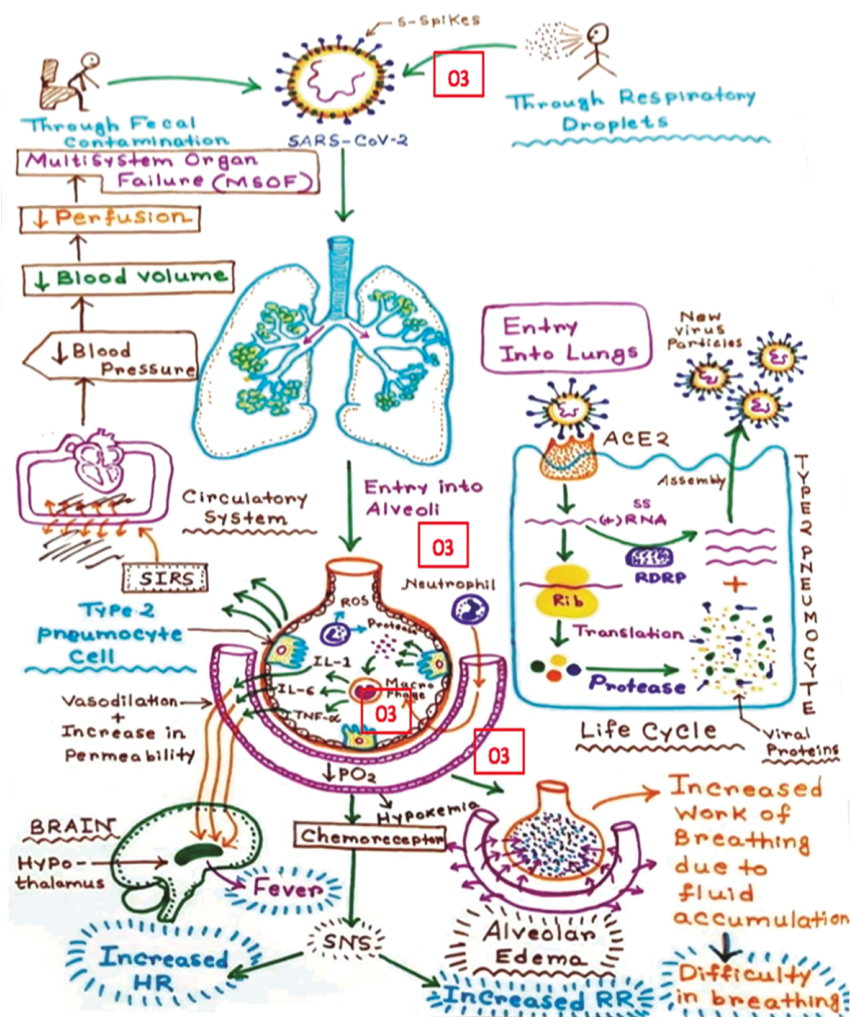 S-Spikes
O3
Through Fecal
Contamination
SARS-CoV-2
Through Respiratory
Droplets
Multisystem Organ
Failure (MSOF)
↓ Perfusion
↓ Blood volume
↓ Blood
Pressure
Circulatory
System
SIRS
Entry
Into Lungs
New
Virus
Particles
ACE2
Assembly
SS
(+)RNA
RDRP
+
Rib
Translation
Protease
Viral
Proteins
Life Cycle
TYPE 2 PNEUMOCYTE
Entry into
Alveoli
O3
Neutrophil
Type-2
pneumocyte
Cell
ROS
Protease
IL-1
IL-6
TNF-α
Macro
phage
O3
O3
Vasodilation
+
Increase in
Permeability
↓PO2
Hypoxemia
Chemoreceptor
BRAIN
Hypo-
thalamus
Fever
SNS
Increased
HR
Increased RR
Alveolar
Edema
Increased
Work of
Breathing
due to
fluid
accumulation
Difficulty
in breathing